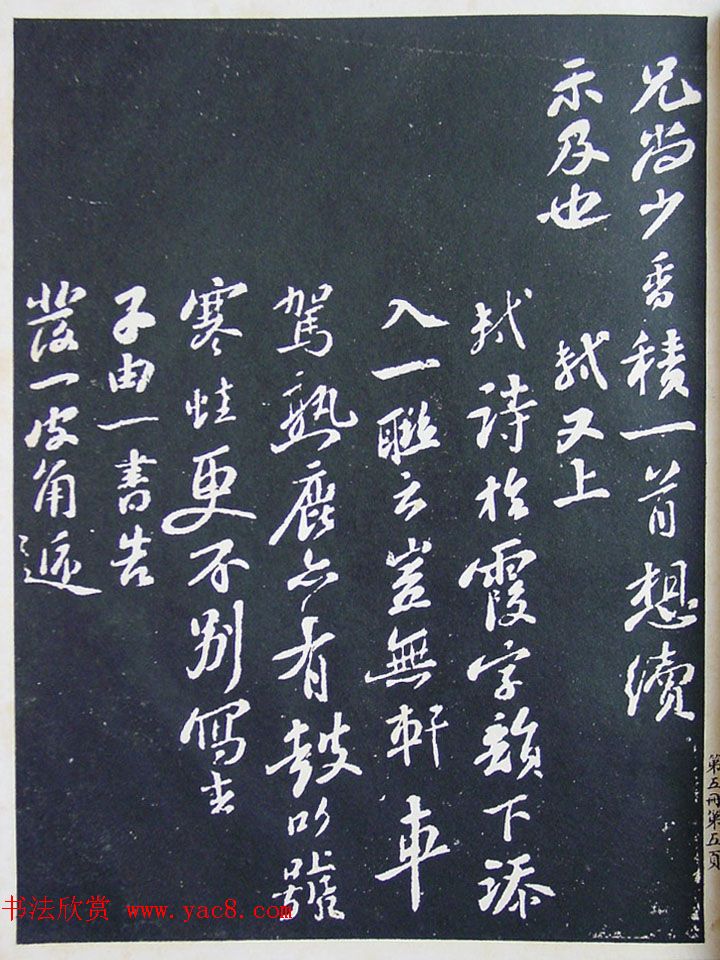 兄尚少香積一首想續
示及也
軾又上
軾詩於霞字韻下添
入一聯云豈無軒車
駕熟鹿亦有鼓吹號
寒蛙更不別寫去
子由一書告
發一皮角遞
第五冊第五頁
书法欣赏 www.yac8.com